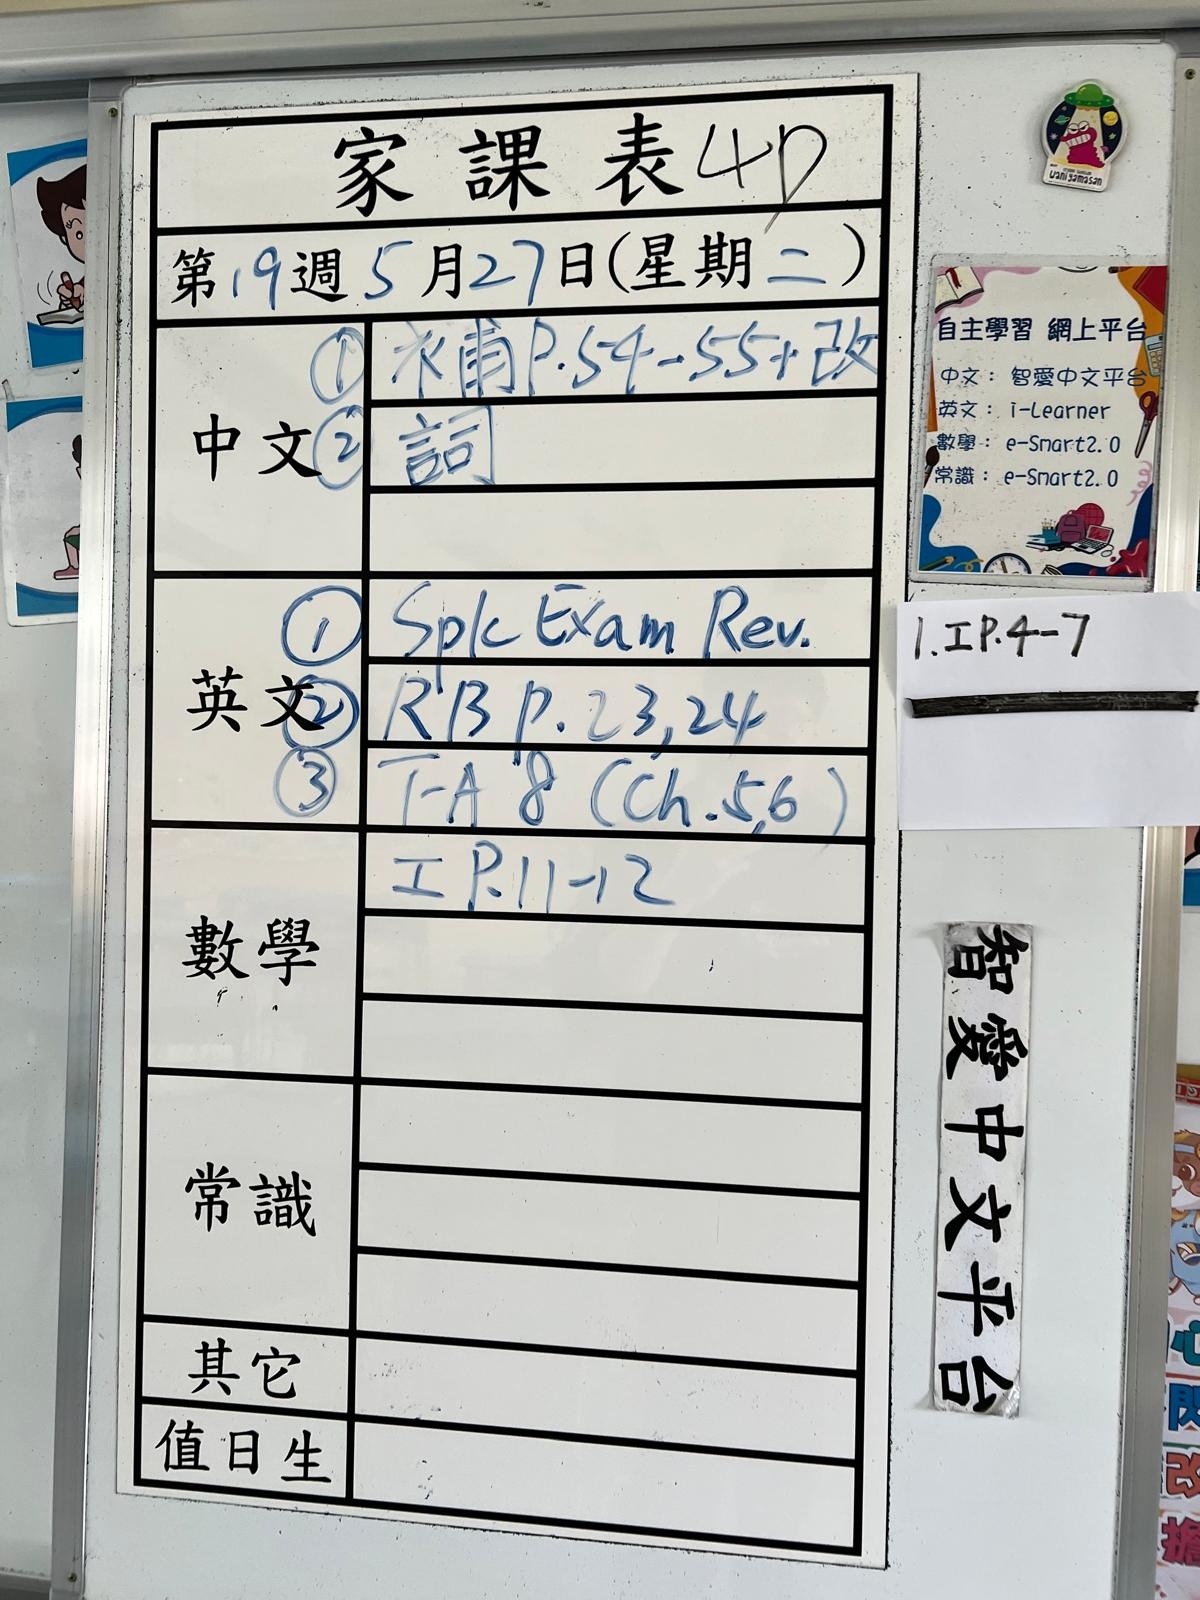 家課表 4D
第19週5月27日(星期二)
中文
① 補P.54-55+改
② 詞
英文
① Spk Exam Rev.
② RB p.23,24
③ T-A 8 (Ch.5,6)
數學
工 P.11-12
常識
其它
值日生
wani yamasan
自主學習 網上平台
中文： 智愛中文平台
英文： i-Learner
數學： e-Smart2.0
常識： e-Smart2.0
1.工P.4-7
智愛中文平台
心
改
擔